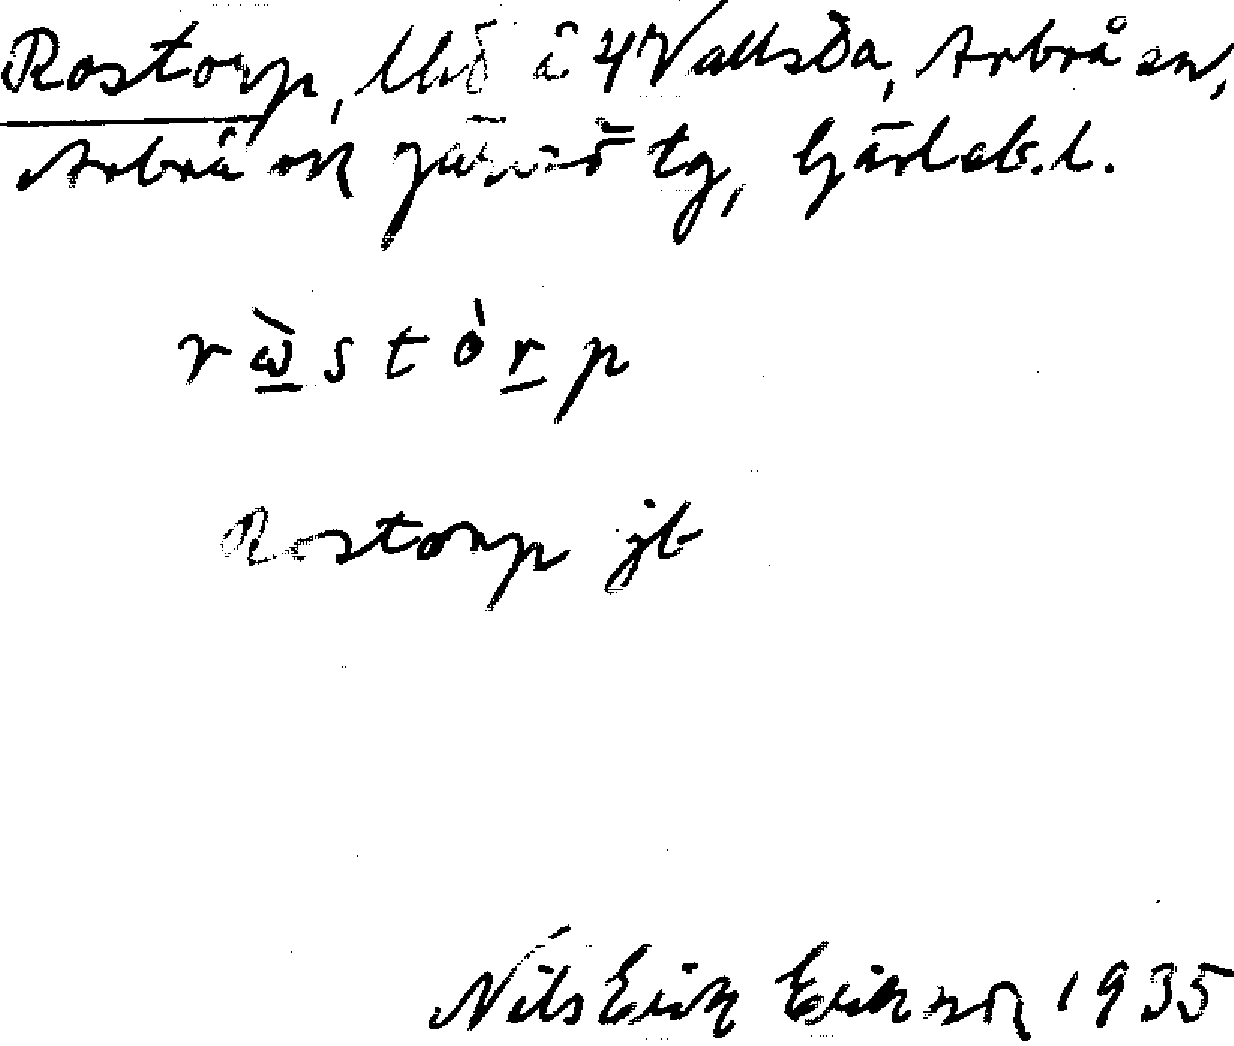 Rostorp, på 4 Vallsta, Arbrå sn,
Arbrå och Järvsö tg, Gävleb. l.
r ò s t ò r p
Rostorp jb
Nils Erik Erikson 1935